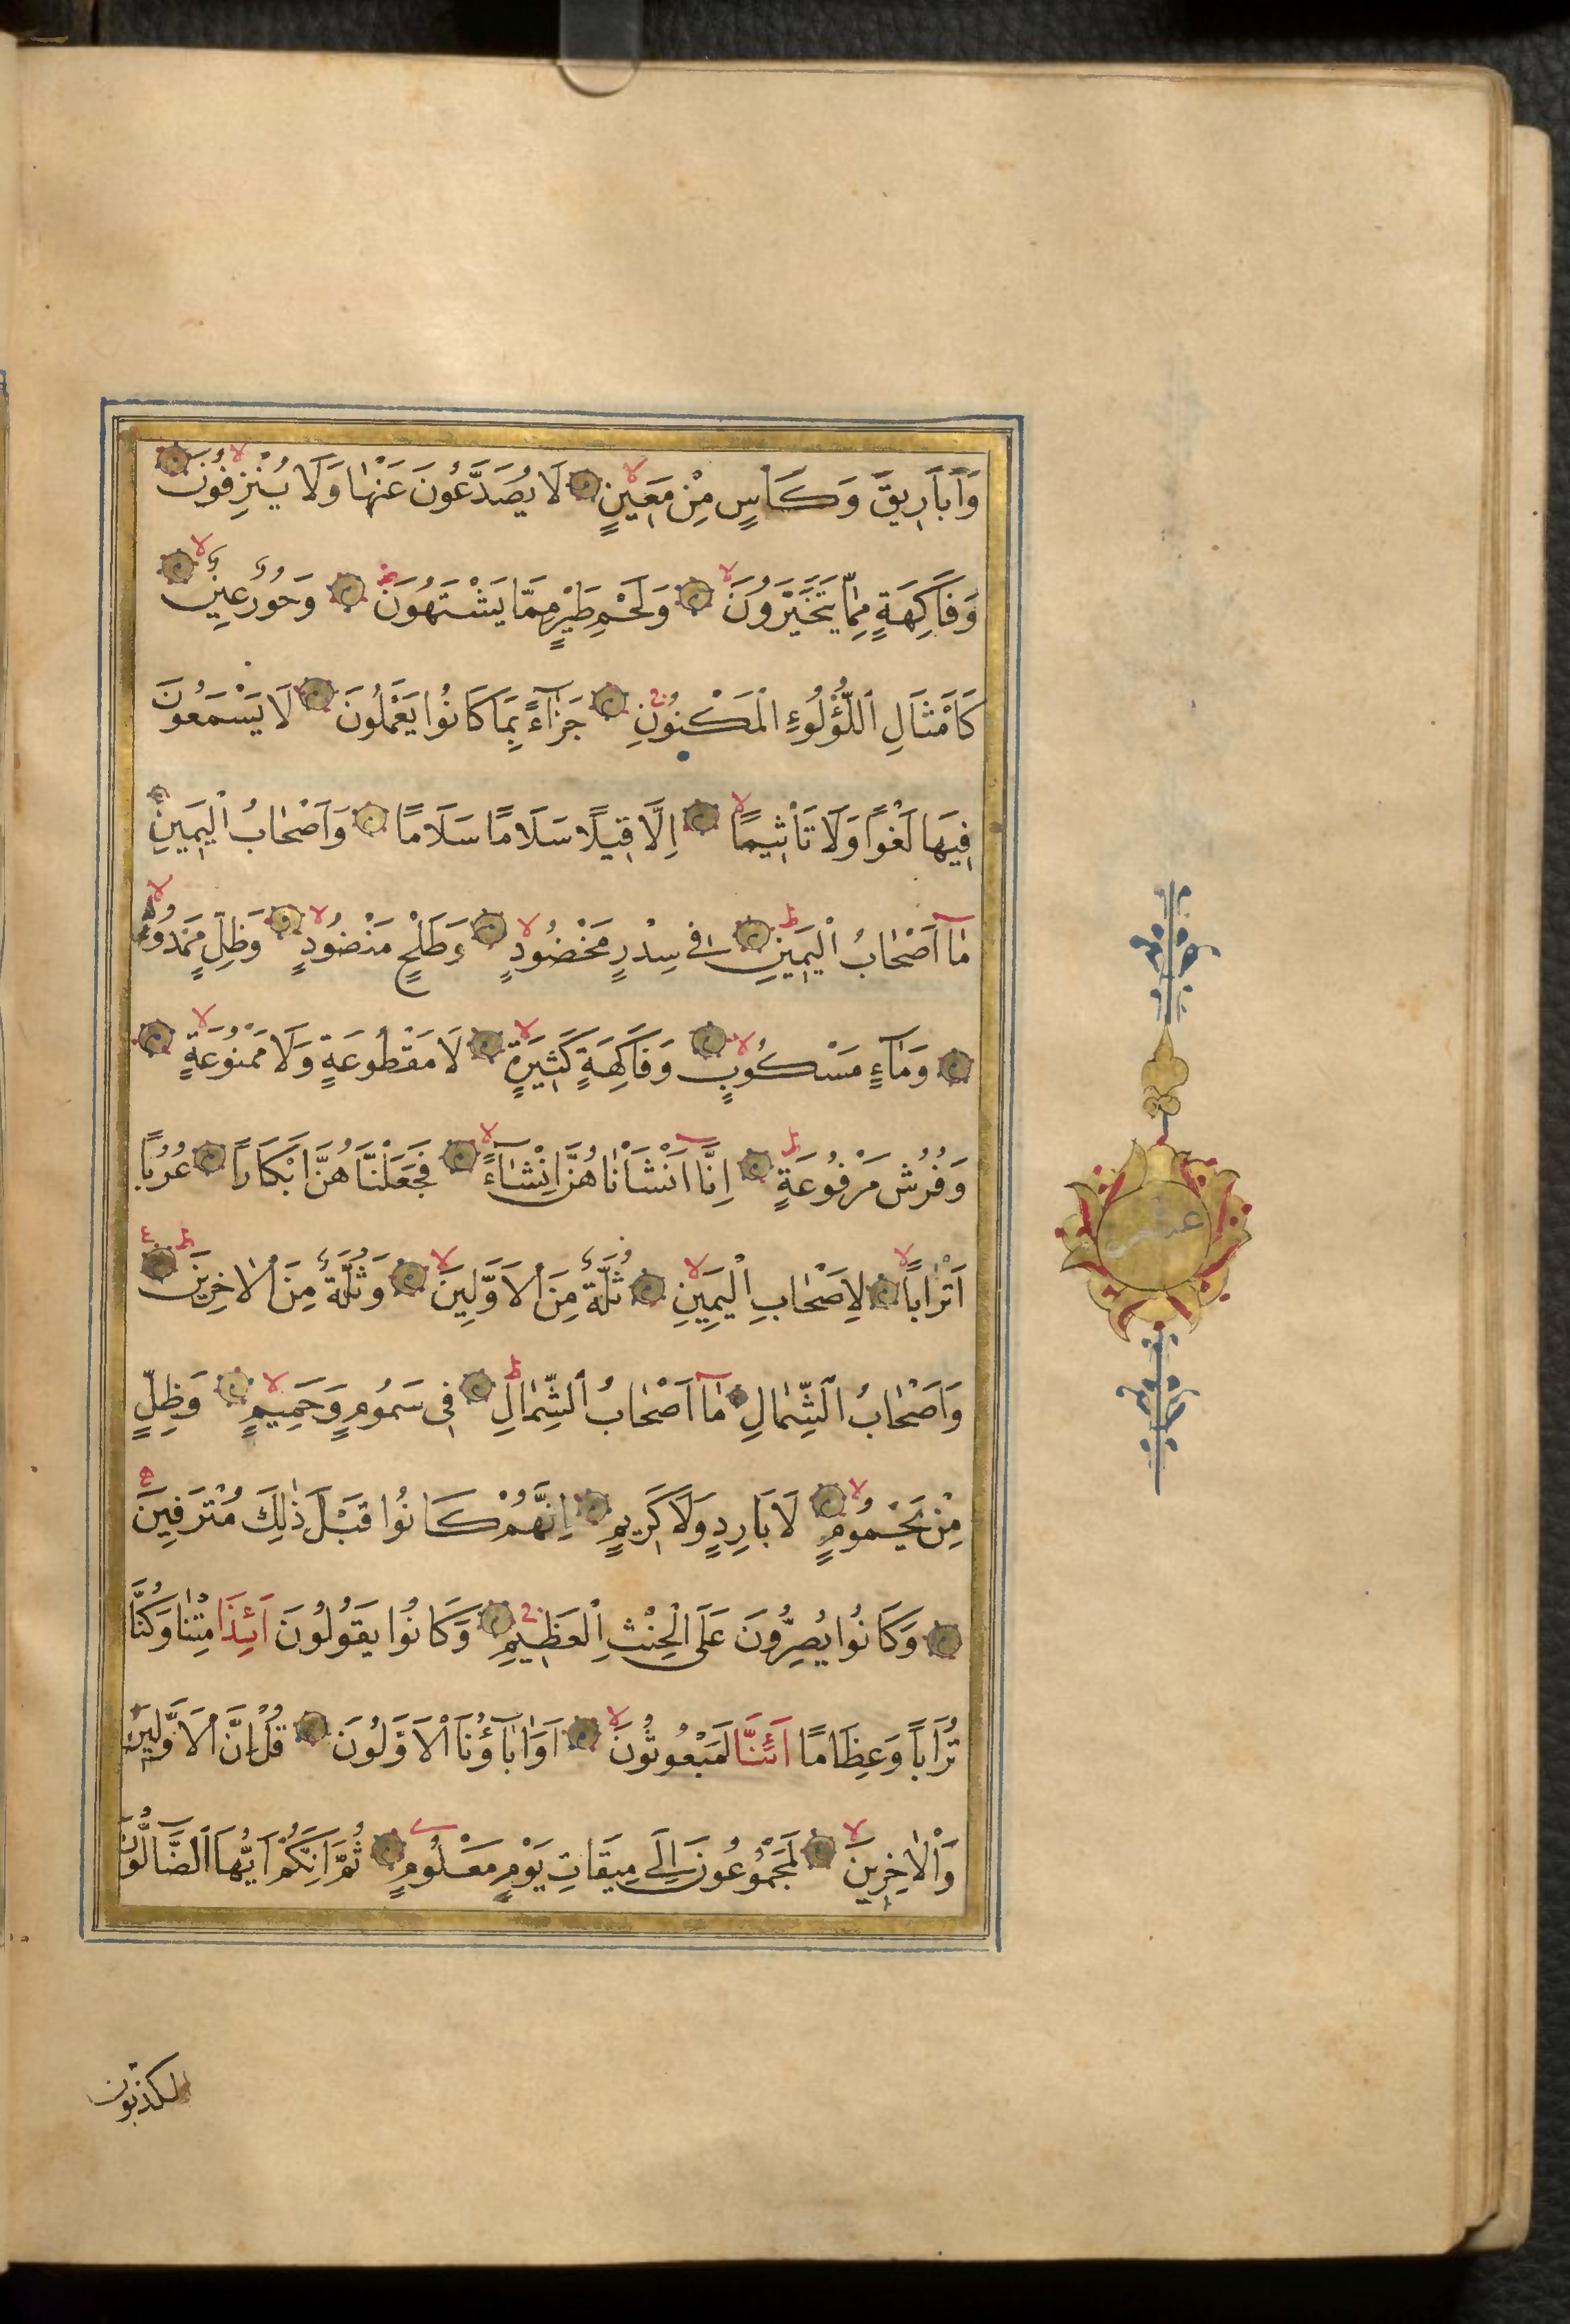 وَاَبَارِيقَ وَكَاْسٍ مِنْ مَعِينٍ لَا يُصَدَّعُونَ عَنْهَا وَلَا يُنْزِفُونَ
وَفَاكِهَةٍ مِمَّا يَتَخَيَّرُونَ وَلَحْمِ طَيْرٍ مِمَّا يَشْتَهُونَ وَحُورٌ عِينٌ
كَاَمْثَالِ اللُّؤْلُوءِ الْمَكْنُونِ جَزَآءً بِمَا كَانُوا يَعْمَلُونَ لَا يَسْمَعُونَ
فِيهَا لَغْوًا وَلَا تَاْثِيمًا اِلَّا قِيلًا سَلَامًا سَلَامًا وَاَصْحَابُ الْيَمِينِ
مَآ اَصْحَابُ الْيَمِينِ فِي سِدْرٍ مَخْضُودٍ وَطَلْحٍ مَنْضُودٍ وَظِلٍّ مَمْدُودٍ
وَمَآءٍ مَسْكُوبٍ وَفَاكِهَةٍ كَثِيرَةٍ لَا مَقْطُوعَةٍ وَلَا مَمْنُوعَةٍ
وَفُرُشٍ مَرْفُوعَةٍ اِنَّا اَنْشَاْنَاهُنَّ اِنْشَآءً فَجَعَلْنَاهُنَّ اَبْكَارًا عُرُبًا
اَتْرَابًا لِاَصْحَابِ الْيَمِينِ ثُلَّةٌ مِنَ الْاَوَّلِينَ وَثُلَّةٌ مِنَ الْاٰخِرِينَ
وَاَصْحَابُ الشِّمَالِ مَآ اَصْحَابُ الشِّمَالِ فِي سَمُومٍ وَحَمِيمٍ وَظِلٍّ
مِنْ يَحْمُومٍ لَا بَارِدٍ وَلَا كَرِيمٍ اِنَّهُمْ كَانُوا قَبْلَ ذٰلِكَ مُتْرَفِينَ
وَكَانُوا يُصِرُّونَ عَلَى الْحِنْثِ الْعَظِيمِ وَكَانُوا يَقُولُونَ اَئِذَا مِتْنَا وَكُنَّا
تُرَابًا وَعِظَامًا اَئِنَّا لَمَبْعُوثُونَ اَوَاٰبَآؤُنَا الْاَوَّلُونَ قُلْ اِنَّ الْاَوَّلِينَ
وَالْاٰخِرِينَ لَمَجْمُوعُونَ اِلَى مِيقَاتِ يَوْمٍ مَعْلُومٍ ثُمَّ اِنَّكُمْ اَيُّهَا الضَّالُّونَ
المكذبون
عشر